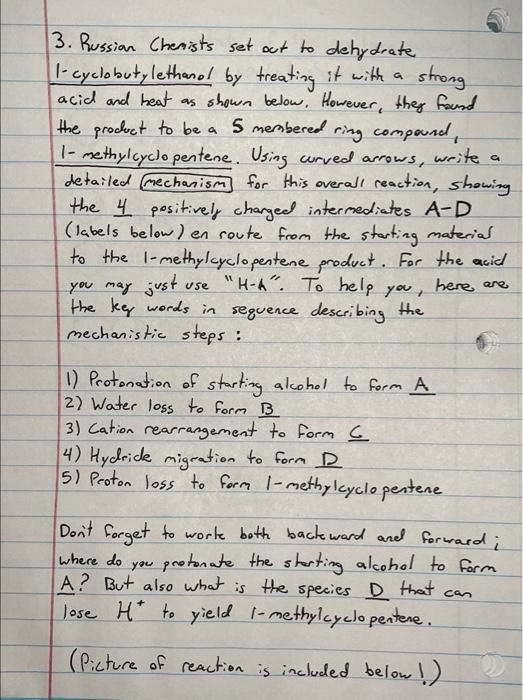 3. Russian Chemists set out to dehydrate
1-cyclobutylethanol by treating it with a strong
acid and heat as shown below. However, they found
the product to be a 5 membered ring compound,
1-methylcyclopentene. Using curved arrows, write a
detailed mechanism for this overall reaction, showing
the 4 positively charged intermediates A-D
(labels below) en route from the starting material
to the 1-methylcyclopentene product. For the acid
you may just use "H-A". To help you, here are
the key words in sequence describing the
mechanistic steps :
1) Protonation of starting alcohol to form A
2) Water loss to form B
3) Cation rearrangement to form C
4) Hydride migration to form D
5) Proton loss to form 1-methylcyclopentene
Don't forget to work both backward and forward ;
where do you protonate the starting alcohol to form
A? But also what is the species D that can
lose H+ to yield 1-methylcyclopentene.
(Picture of reaction is included below!)